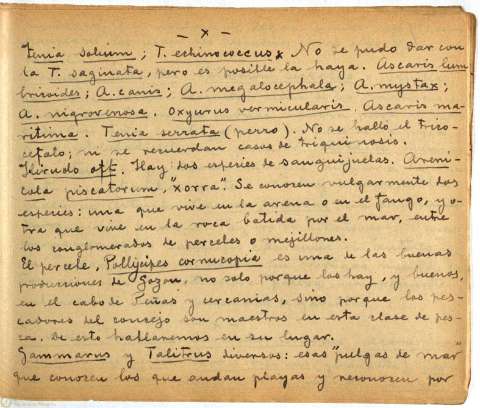 - x -
Tenia solium; T. echinococcus x No se pudo dar con
la T. saginata, pero es posible la haya. Ascaris lum
bricoides; A. canis; A. megalocephala; A. mystax;
A. nigrovenosa. Oxyurus vermicularis. Ascaris ma-
ritima. Tenia serrata (perro). No se halló el trico-
cefalo; ni se recuerdan casos de triquinosis.
Hirudo off. Hay dos especies de sanguijuelas. Areni-
cola piscatorum, "xorra". Se conocen vulgarmente dos
especies: una que vive en la arena o en el fango, y o-
tra que vive en la roca batida por el mar, entre
los conglomerados de percebes o mejillones.
El percebe, Pollycipes cornucopia es una de las buenas
producciones de Gozon, no solo porque los hay, y buenos,
en el cabo de Peñas y cercanias, sino porque los pes-
cadores del concejo son maestros en esta clase de pes-
ca. De esto hablaremos en su lugar.
Gammarus y Talitrus diversos: esas "pulgas de mar"
que conocen los que andan playas y reconocen por